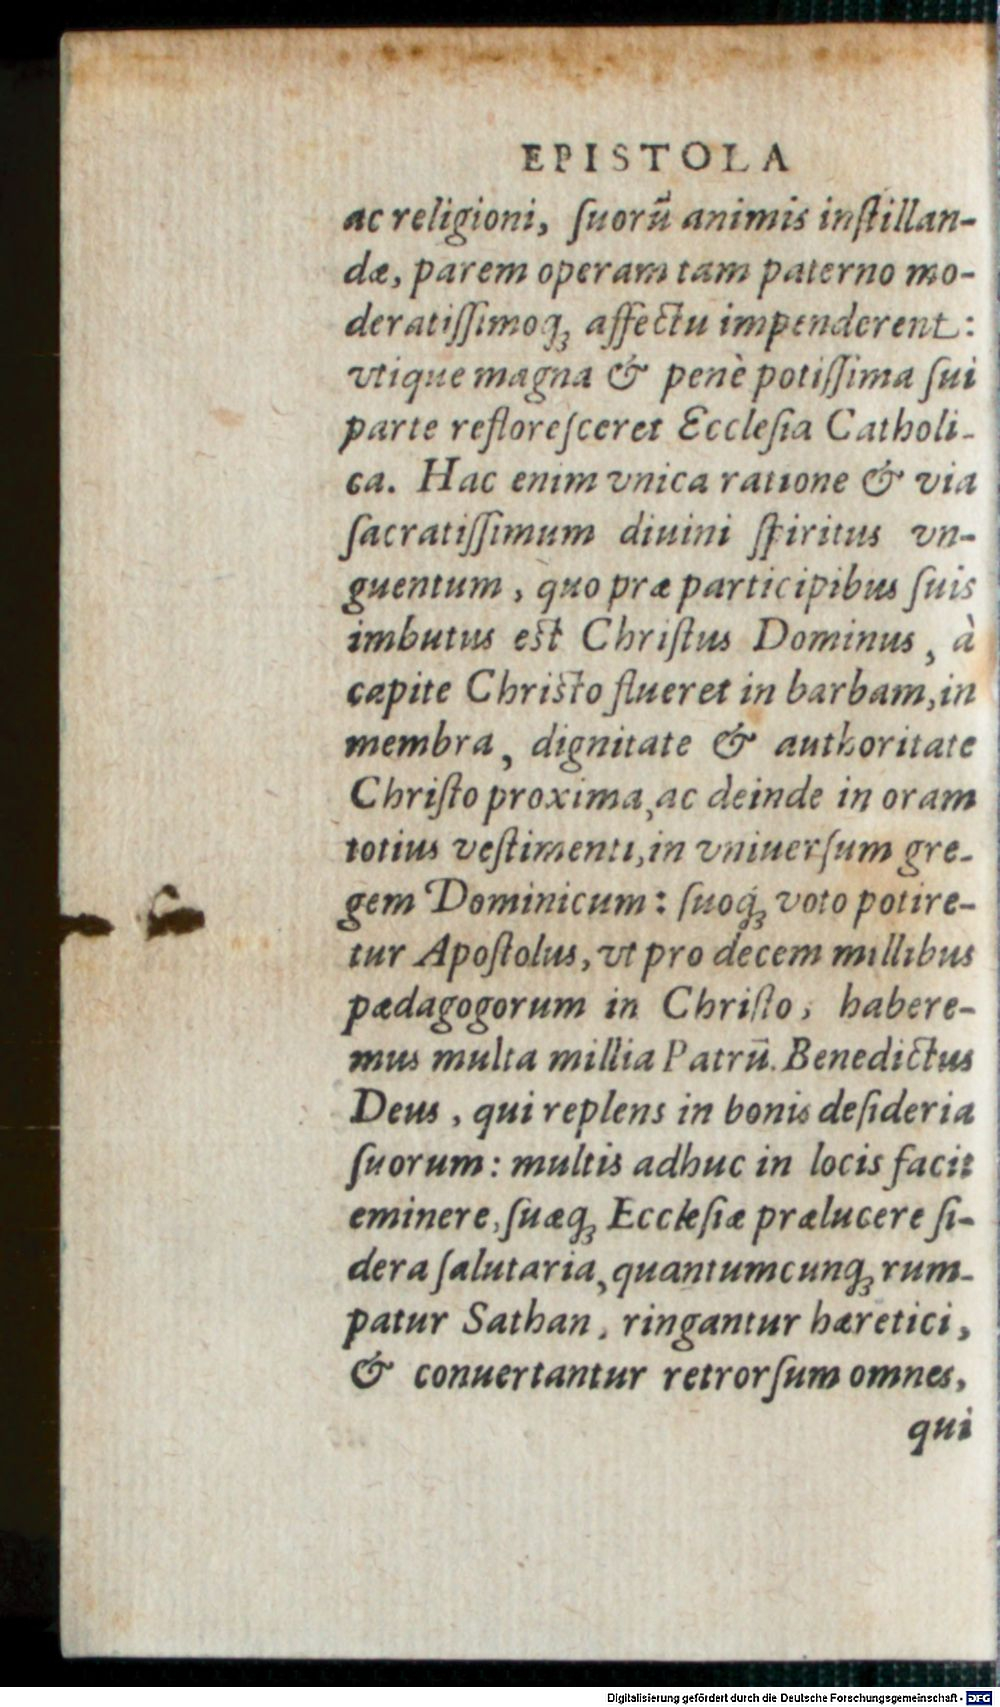 EPISTOLA
ac religioni, ſuorũ animis inſtillan-
dæ, parem operam tam paterno mo-
deratiſſimoq; affectu impenderent:
vtique magna & penè potiſſima ſui
parte refloreſceret Eccleſia Catholi-
ca. Hac enim vnica ratione & via
ſacratiſſimum diuini ſpiritus vn-
guentum, quo præ participibus ſuis
imbutus est Chriſtus Dominus, à
capite Christo flueret in barbam, in
membra, dignitate & authoritate
Chriſto proxima, ac deinde in oram
totius veſtimenti, in vniuerſum gre-
gem Dominicum: ſuoq; voto potire-
tur Apoſtolus, vt pro decem millibus
pædagogorum in Chriſto, habere-
mus multa millia Patrũ. Benedictus
Deus, qui replens in bonis deſideria
ſuorum: multis adhuc in locis facit
eminere, ſuæq; Eccleſiæ prælucere ſi-
dera ſalutaria, quantumcunq; rum-
patur Sathan, ringantur hæretici,
& conuertantur retrorſum omnes,
qui
Digitalisierung gefördert durch die Deutsche Forschungsgemeinschaft - DFG